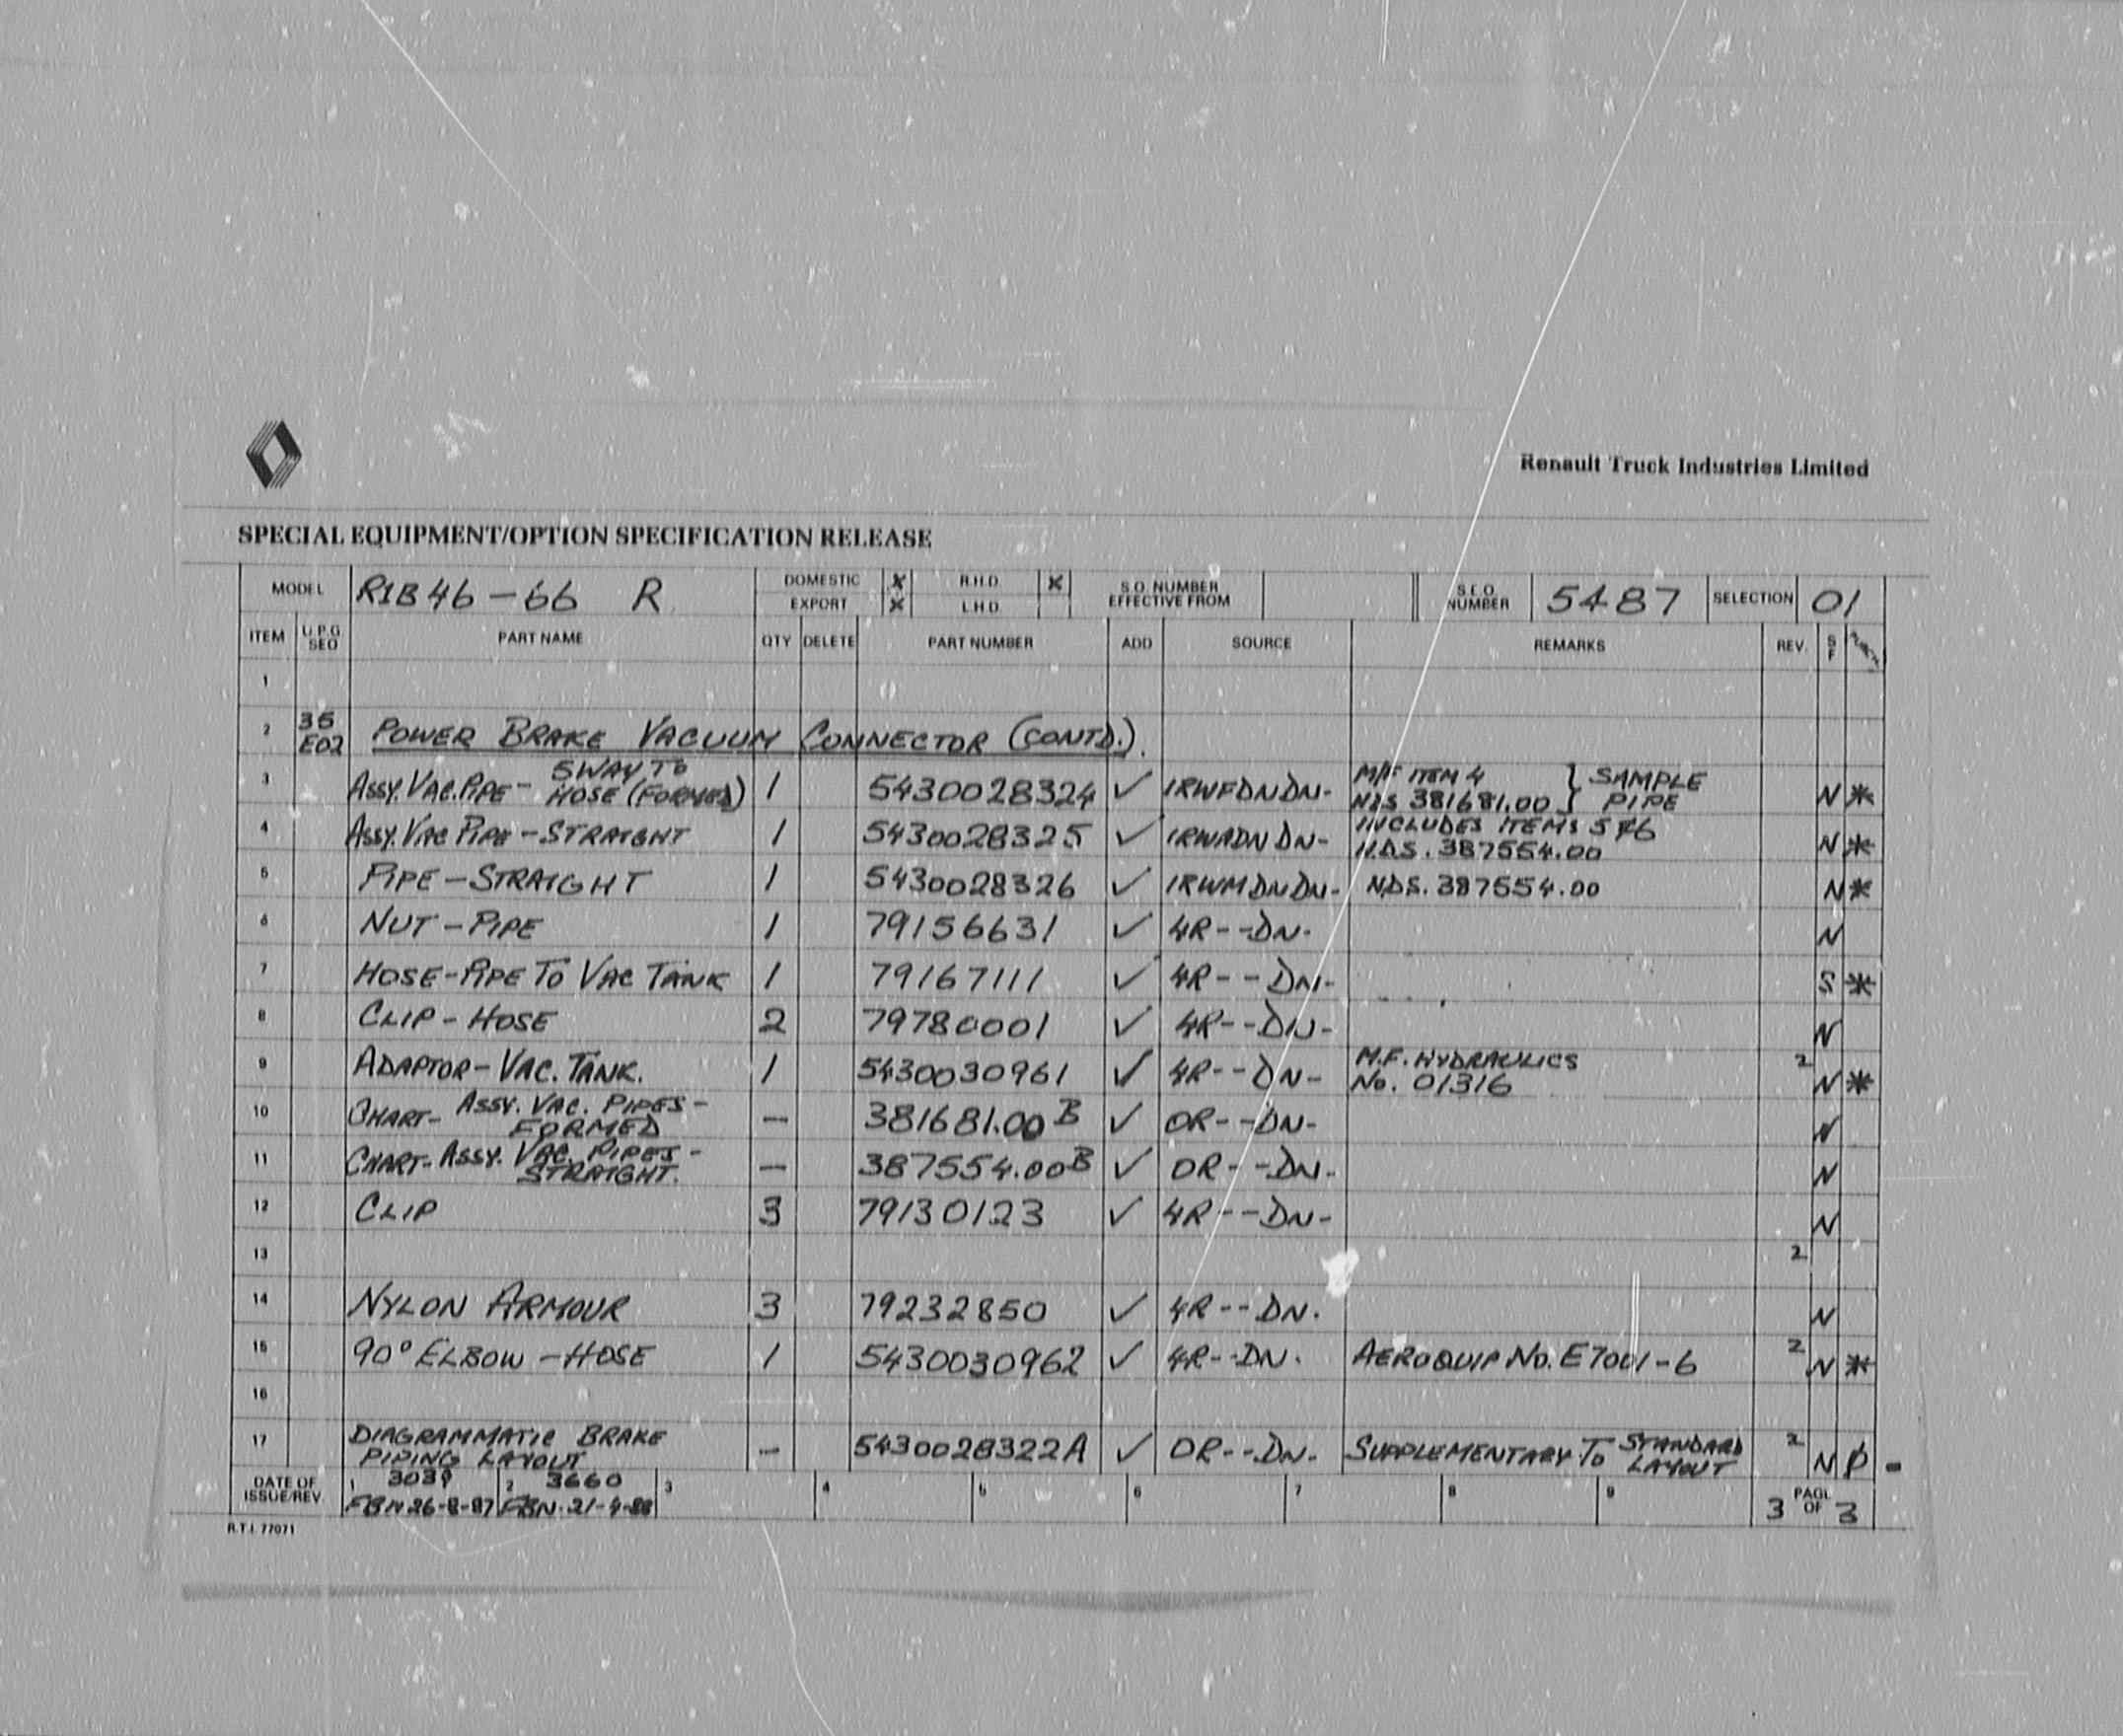 Renault Truck Industries Limited
SPECIAL EQUIPMENT/OPTION SPECIFICATION RELEASE
MODEL R1B46-66 R DOMESTIC X R.H.D. X S.O. NUMBER EFFECTIVE FROM S.E.O. NUMBER 5487 SELECTION 01
EXPORT X L.H.D.
ITEM U.P.G. SEQ PART NAME QTY DELETE PART NUMBER ADD SOURCE REMARKS REV. S F
1
2 35 E02 POWER BRAKE VACUUM CONNECTOR (CONTD.).
3 ASSY. VAC. PIPE - SWAY TO HOSE (FORMED) 1 5430028324 ✓ 1RWFDNDN- M/F ITEM 4 NDS 381681.00 } SAMPLE PIPE N *
4 ASSY. VAC PIPE - STRAIGHT 1 5430028325 ✓ 1RWADNDN- INCLUDES ITEMS 5 & 6 N.D.S. 387554.00 N *
5 PIPE - STRAIGHT 1 5430028326 ✓ 1RWMDNDN- N.D.S. 387554.00 N *
6 NUT - PIPE 1 79156631 ✓ 4R--DN- N
7 HOSE - PIPE TO VAC TANK 1 79167111 ✓ 4R--DN- S *
8 CLIP - HOSE 2 79780001 ✓ 4R--DN- N
9 ADAPTOR - VAC. TANK. 1 5430030961 ✓ 4R--DN- M.F. HYDRAULICS No. 01316 2 N *
10 CHART - ASSY. VAC. PIPES - FORMED — 381681.00 B ✓ OR--DN- N
11 CHART - ASSY. VAC. PIPES - STRAIGHT. — 387554.00 B ✓ OR--DN- N
12 CLIP 3 79130123 ✓ 4R--DN- N
13 2
14 NYLON ARMOUR 3 79232850 ✓ 4R--DN. N
15 90° ELBOW - HOSE 1 5430030962 ✓ 4R--DN. AEROQUIP No. E7001-6 2 N *
16
17 DIAGRAMMATIC BRAKE PIPING LAYOUT — 5430028322A ✓ OR--DN. SUPPLEMENTARY TO STANDARD LAYOUT 2 N
DATE OF ISSUE/REV. 1 3039 26-8-87 2 3660 21-4-88 3 4 5 6 7 8 9 PAGE 3 OF 3
R.T.I. 77071